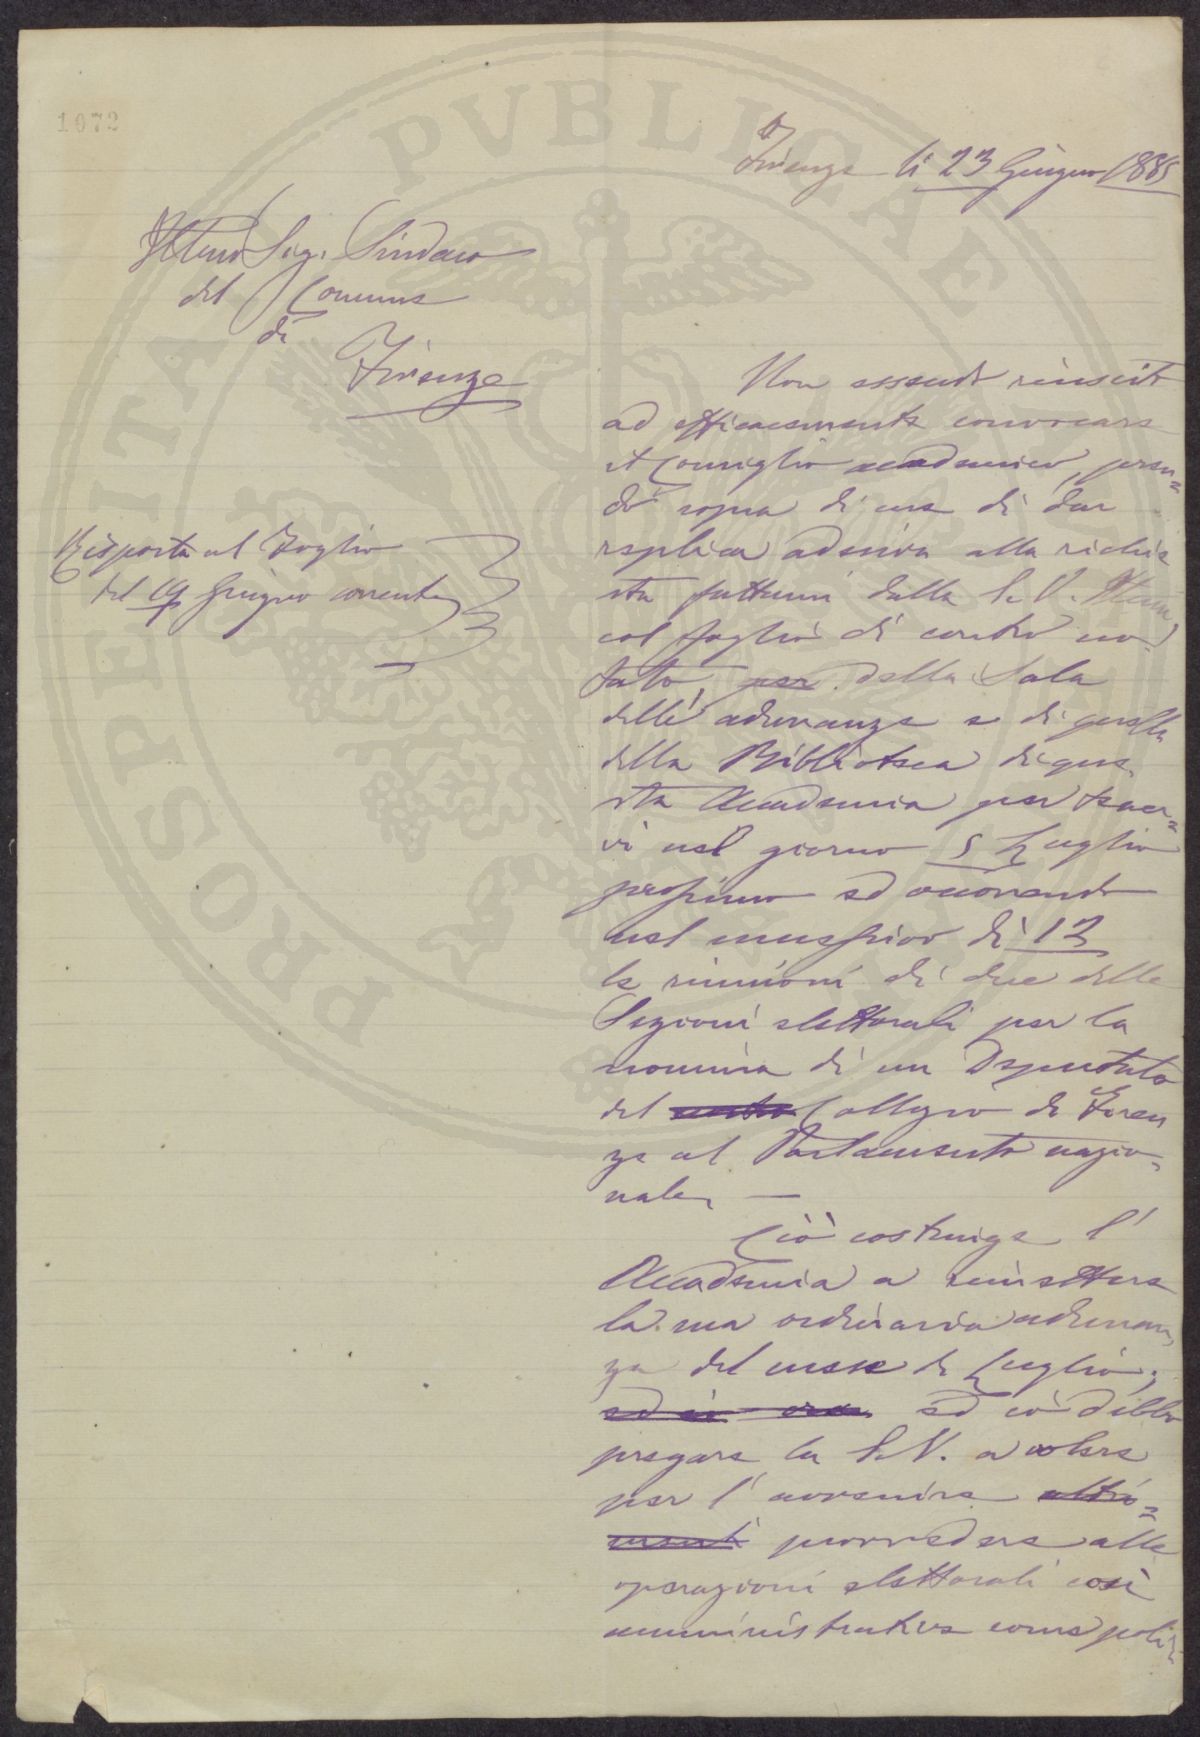 1072
Firenze li 23 Giugno 1885
Ill.mo Sig. Sindaco
del Comune
di
Firenze
Risposta al Foglio
del 19 Giugno corrente
Non essendo riuscito
ad efficacemente convocare
il Consiglio accademico, pren-
do sopra di me di dar
replica adesiva alla richie
sta fattami dalla S. V. Ill.ma,
col foglio di contro no-
tato, per della Sala
delle adunanze e di quella
della Biblioteca di que-
sta Accademia per tener-
vi nel giorno 5 Luglio
prossimo ed occorrendo
nel successivo di 12
le riunioni di due delle
Sezioni elettorali per la
nomina di un Deputato
del Collegio di Firen
ze al Parlamento nazio-
nale. —
Ciò costringe l'
Accademia a rimettere
la sua ordinaria adunan-
za del mese di Luglio;
ed in ora ed io debbo
pregare la S. V. a volere
per l'avvenire altri-
menti provvedere alle
operazioni elettorali così
amministrative come poli-
PUBLICAE
PROSPERITATI